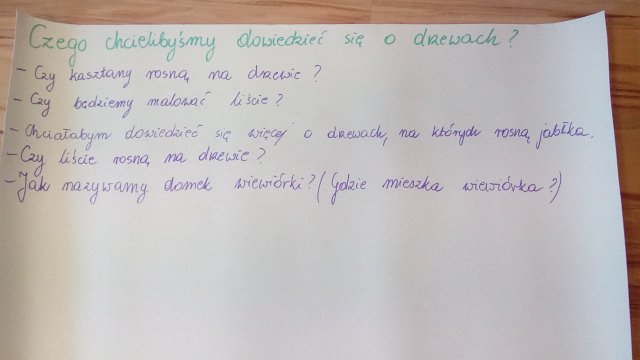 Czego chcielibyśmy dowiedzieć się o drzewach?
- Czy kasztany rosną na drzewie?
- Czy będziemy malować liście?
- Chciałabym dowiedzieć się więcej o drzewach, na których rosną jabłka.
- Czy liście rosną na drzewie?
- Jak nazywamy domek wiewiórki? (Gdzie mieszka wiewiórka?)